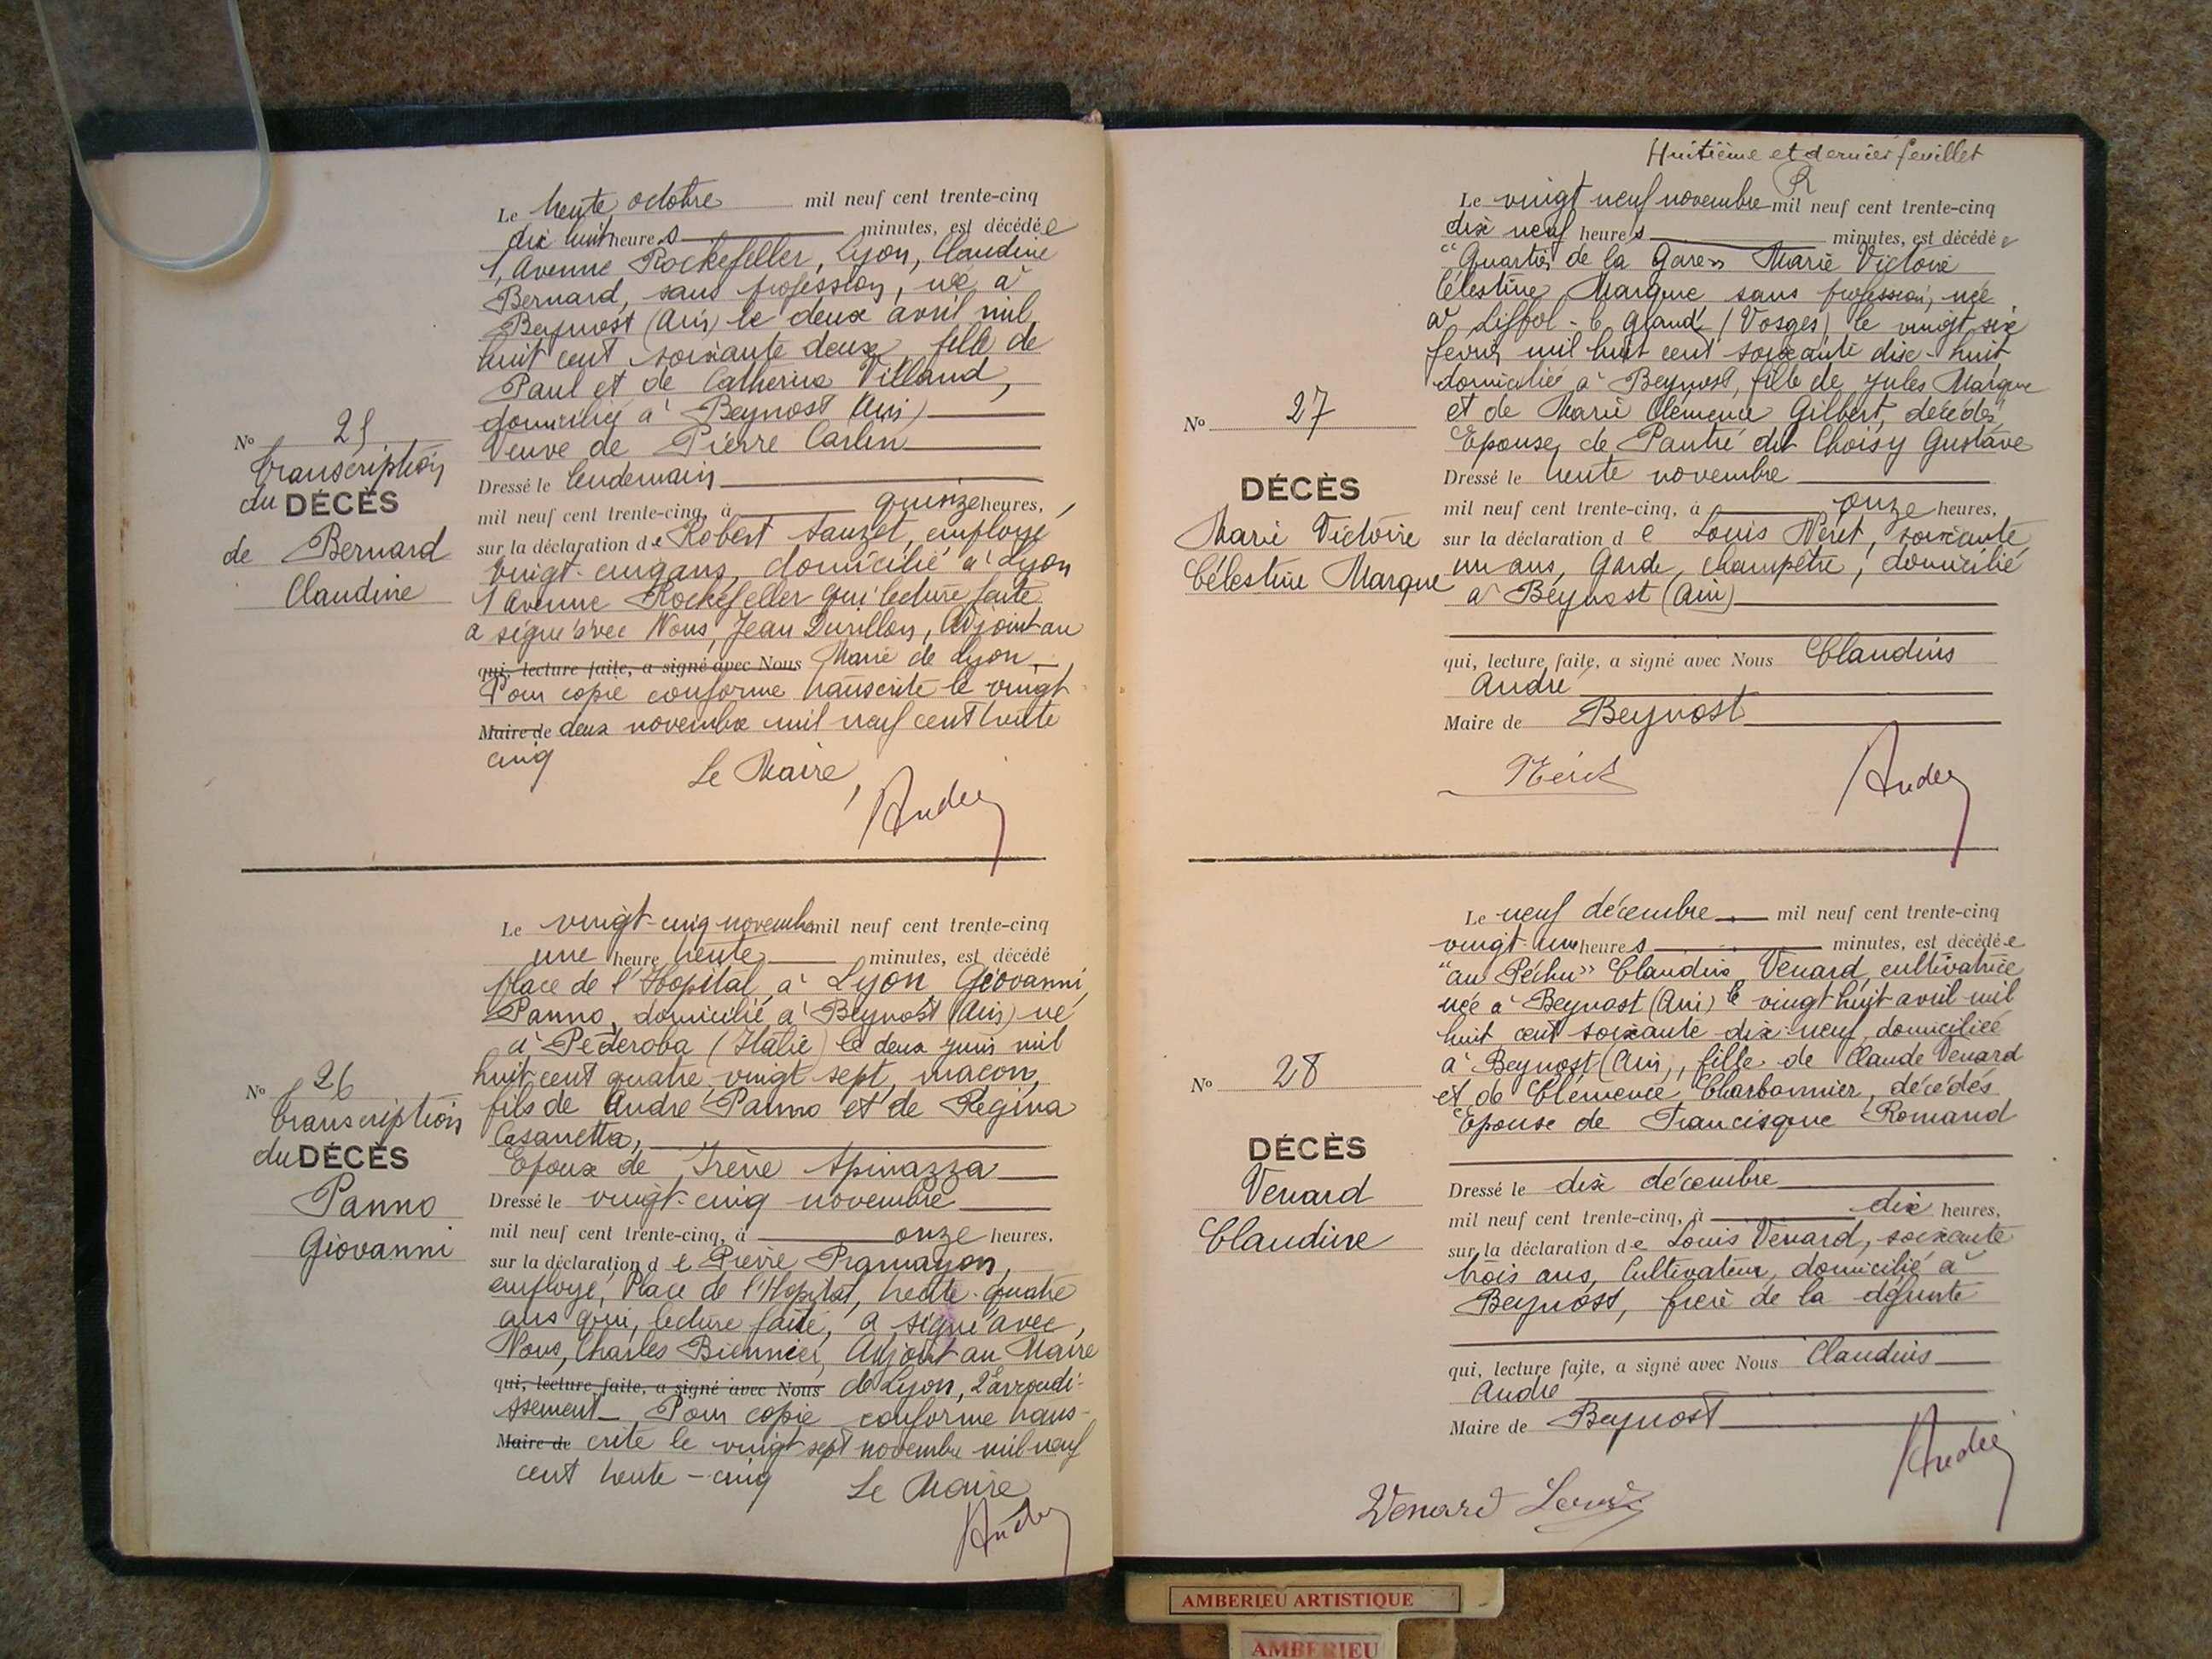 Le trente octobre mil neuf cent trente-cinq
dix huit heures minutes, est décédée
1, Avenue Rockefeller, Lyon, Claudine
Bernard, sans profession, née à
Beynost (Ain) le deux avril mil
huit cent soixante deux, fille de
Paul et de Catherine Villand,
domiciliée à Beynost (Ain)
Veuve de Pierre Carlin
Dressé le lendemain
mil neuf cent trente-cinq, à quinze heures,
sur la déclaration de Robert Sauzet, employé
vingt-cinq ans, domicilié à Lyon
1 Avenue Rockefeller qui lecture faite
a signé avec Nous, Jean Durillon, Adjoint au
qui, lecture faite, a signé avec Nous Maire de Lyon
Pour copie conforme transcrite le vingt
Maire de deux novembre mil neuf cent trente
cinq
Le Maire,
André
N° 25
Transcription
du DÉCÈS
de Bernard
Claudine
Le vingt-cinq novembre mil neuf cent trente-cinq
une heure trente minutes, est décédé
place de l'Hopital, à Lyon Giovanni
Panno, domicilié à Beynost (Ain) né
à Pederoba (Italie) le deux juin mil
huit cent quatre vingt sept, maçon,
fils de André Panno et de Regina
Casanetta,
Epoux de Irène Spinazza
Dressé le vingt-cinq novembre
mil neuf cent trente-cinq, à onze heures,
sur la déclaration de Pierre Pramayon,
employé, Place de l'Hopital, trente-quatre
ans qui, lecture faite, a signé avec
Nous, Charles Biennier, Adjoint au Maire
qui, lecture faite, a signé avec Nous de Lyon, 2e arrondi-
ssement. Pour copie conforme trans-
Maire de crite le vingt sept novembre mil neuf
cent trente-cinq
Le Maire
André
N° 26
Transcription
du DÉCÈS
Panno
Giovanni
Huitième et dernier feuillet
Le vingt neuf novembre mil neuf cent trente-cinq
dix neuf heures minutes, est décédée
"Quartier de la Gare" Marie Victoire
Célestine Marque sans profession, née
à Liffol-le Grand (Vosges) le vingt six
fevrier mil huit cent soixante dix-huit
domiciliée à Beynost, fille de Jules Marque
et de Marie Clémence Gilbert, décédés
Epouse de Pautré dit Choisy Gustave
Dressé le trente novembre
mil neuf cent trente-cinq, à onze heures,
sur la déclaration de Louis Néret, soixante
un ans, Garde champêtre, domicilié
à Beynost (Ain)
qui, lecture faite, a signé avec Nous Claudius
André
Maire de Beynost
Néret
André
N° 27
DÉCÈS
Marie Victoire
Célestine Marque
Le neuf décembre mil neuf cent trente-cinq
vingt-une heures minutes, est décédée
"au Péchu" Claudine Venard, cultivatrice
née à Beynost (Ain) le vingt huit avril mil
huit cent soixante dix-neuf, domiciliée
à Beynost (Ain), fille de Claude Venard
et de Clémence Charbonnier, décédés
Epouse de Francisque Romand
Dressé le dix décembre
mil neuf cent trente-cinq, à dix heures,
sur la déclaration de Louis Venard, soixante
trois ans, Cultivateur, domicilié à
Beynost, frère de la défunte
qui, lecture faite, a signé avec Nous Claudius
André
Maire de Beynost
André
Venard Louis
N° 28
DÉCÈS
Venard
Claudine
AMBERIEU ARTISTIQUE
AMBERIEU